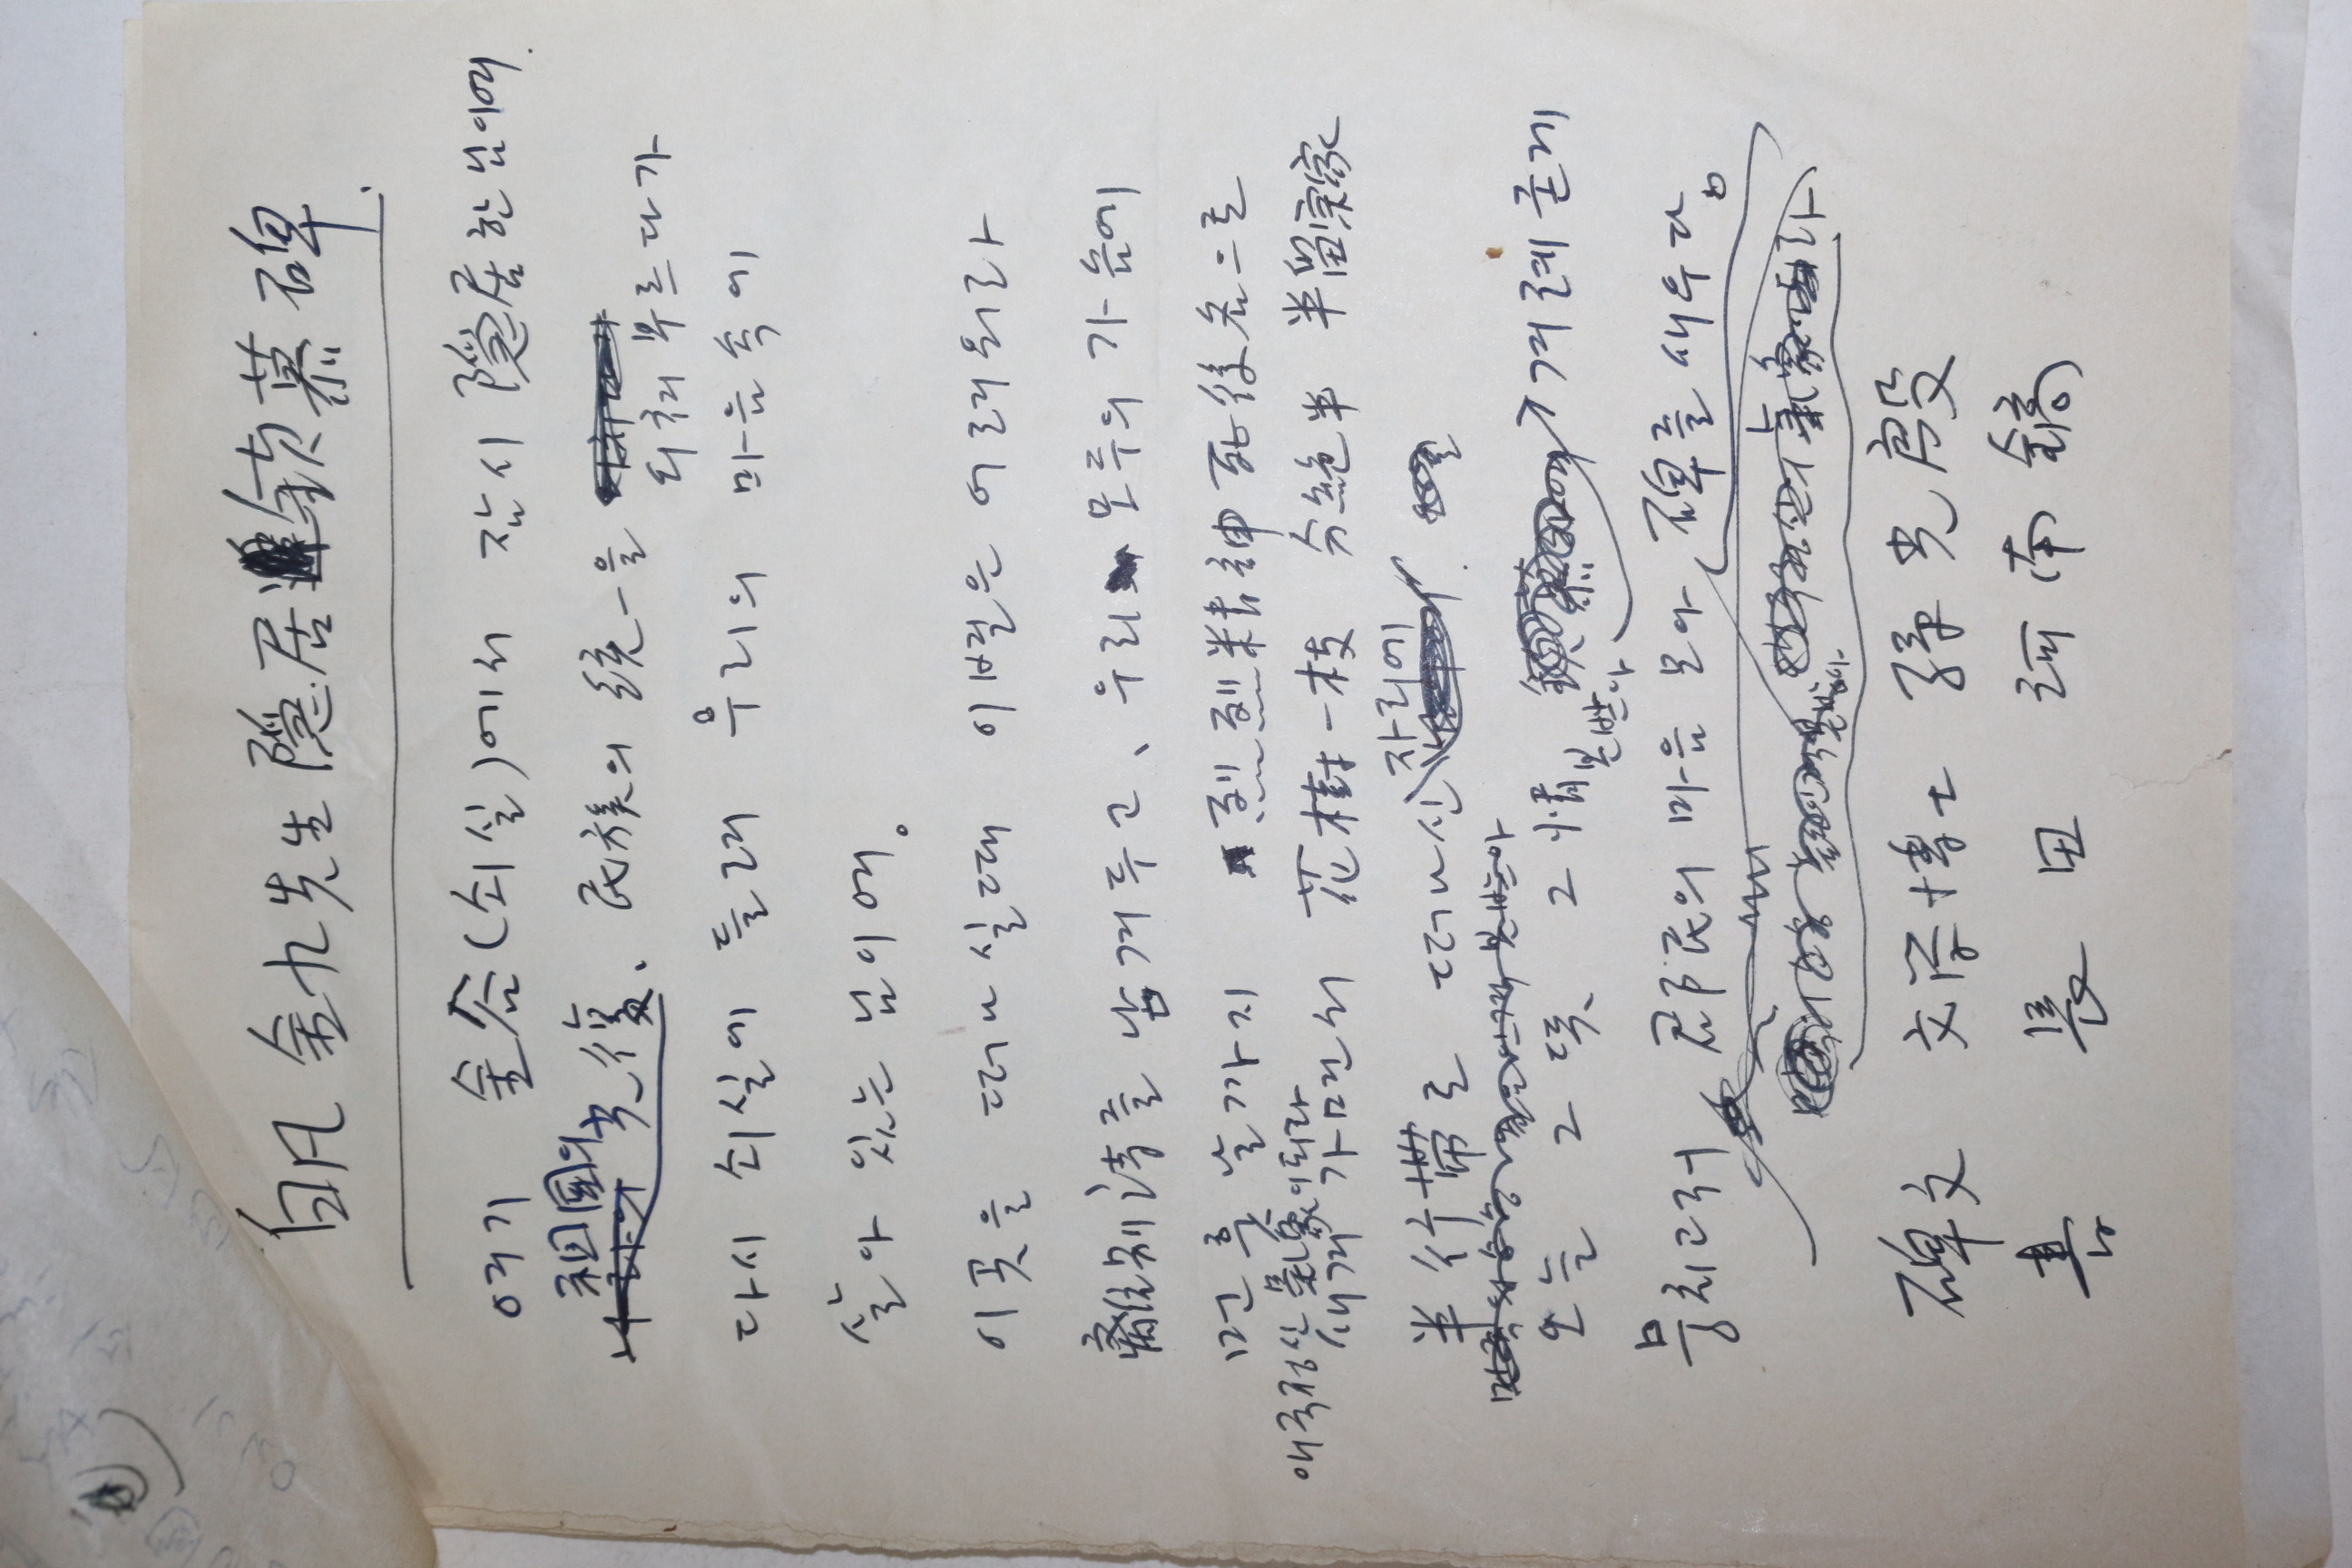 白凡 金九先生 隱居 欽慕碑.
여기 金谷(쇠실)에서 잠시 隱居한 님이여.
祖國의
나라의 光復、民族의 統一을
외쳐 부르다가
다시 쇠실에 들려 우리의 마음속에
살아 있는 님이여。
이곳을 떠나실때 이별은 어려워라
離別詩를 남겨두고、우리 모두의 가슴에
먼 훗날까지 烈烈精神死後名으로
애국정신 氣象이되라
새겨 가면서 花樹一枝 分絶半 半留宗家
자리에
半行帶로 떠나신
본받아
오늘 그 뜻 그 情 欽慕하여 겨레 굳게
본받아
뭉치고저 郡民의 마음 모아 碑를 새우다。
본받아 氣象
碑文 文学博士 孫光殷
書 長田 河南鎬